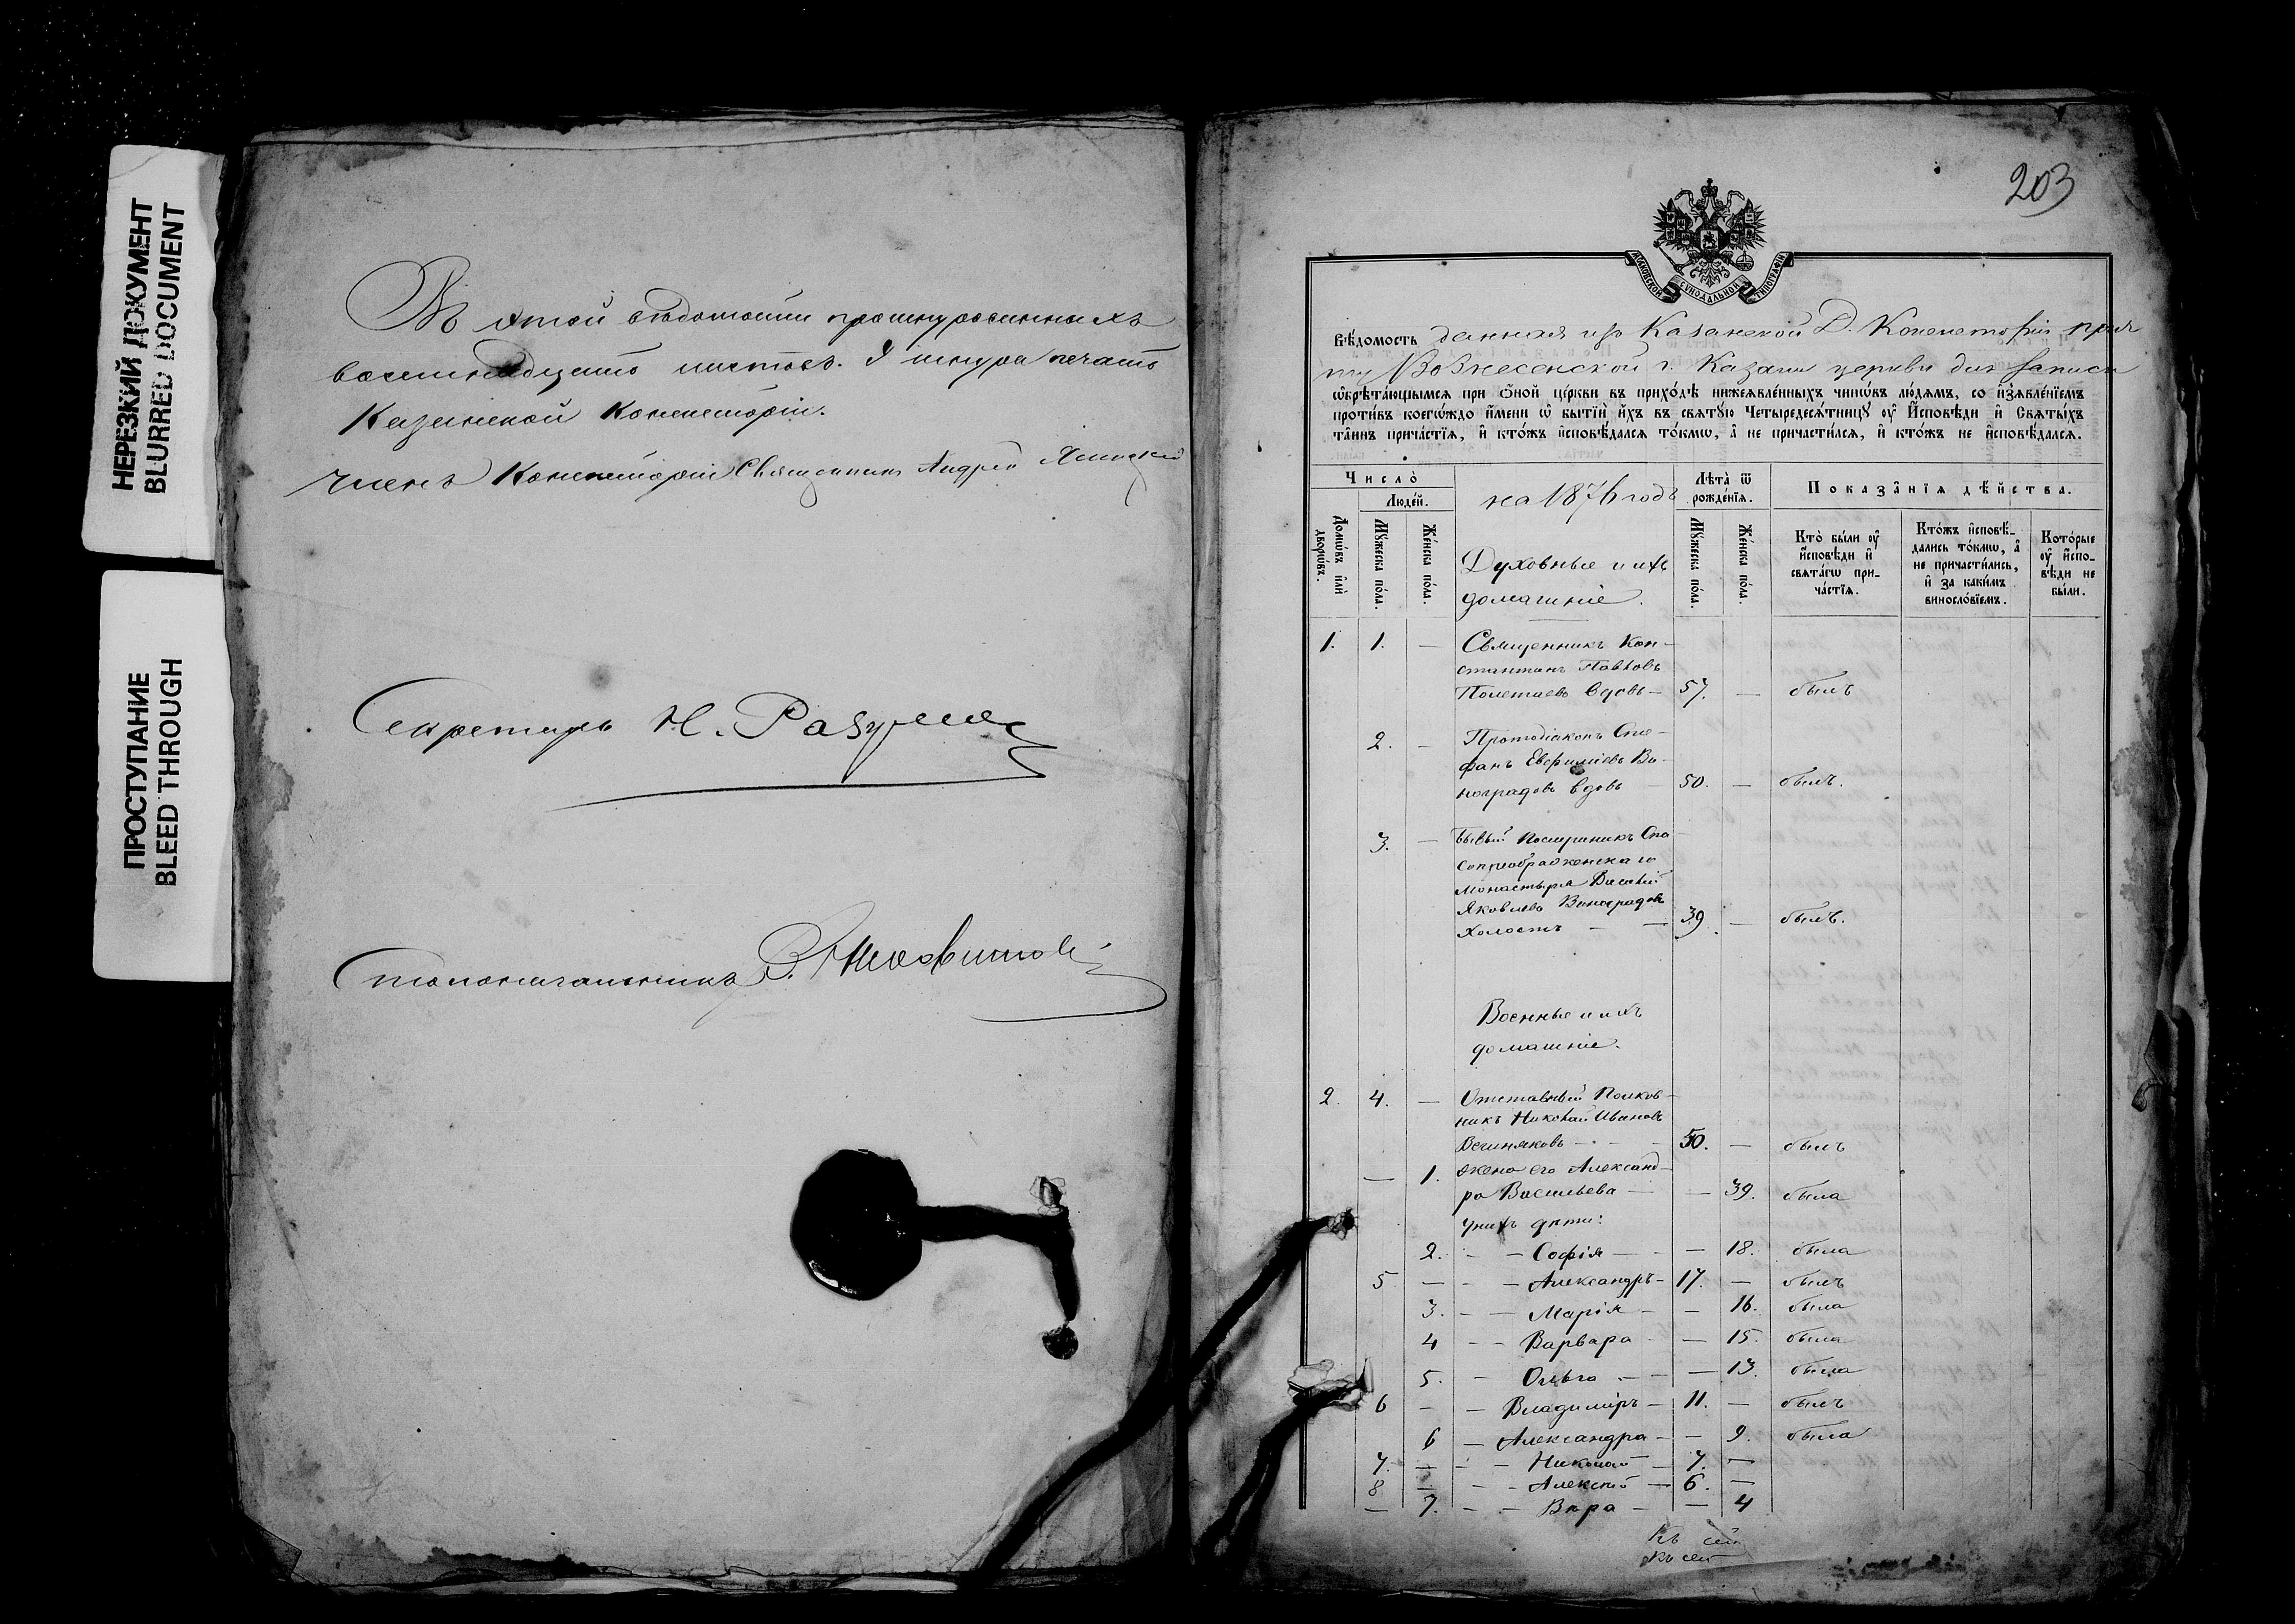 НЕРЕЗКИЙ ДОКУМЕНТ
BLURRED DOCUMENT
ПРОСТУПАНИЕ
BLEED THROUGH
Въ этой вѣдомости прошнурованныхъ
восемнадцать листовъ. У шнура печать
Казанской Консисторіи.
Членъ Консисторіи Священникъ Андрей
Секретарь Н. Разумов
Столоначальникъ В.
203
МОСКОВСКОЙ СѴНОДАЛЬНОЙ ТИПОГРАФІИ
Вѣдомость данная изъ Казанской Д. Консисторіи прич
ту Вознесенской г. Казани церкви для записи
ѡбрѣтающымся при ѻной церкви въ приходѣ нижеявленныхъ чинѡвъ людямъ, со изъявленіемъ
противъ коегѡждо имени ѡ бытіи ихъ въ святую Четыредесятницу оу Исповѣди и Святыхъ
таинъ причастія, и ктожъ исповѣдался токмѡ, а не причастился, и ктожъ не исповѣдался.
Число
Людей.
Домѡвъ или дворѡвъ.
Мужеска пола.
Женска пола.
на 1876 годъ
Духовные и ихъ
домашніе.
Лѣта ѿ рожденія.
Мужеска пола.
Женска пола.
Показанія дѣйства.
Кто были оу исповѣди и святагѡ причастія.
Ктожъ исповѣдались токмѡ, а не причастились, и за какимъ винословіемъ.
Которые оу исповѣди не были.
1. 1. — Священникъ Кон-
стантинъ Павловъ
Полетаевъ вдовъ — 57. — былъ
2. — Протодіаконъ Сте-
фанъ Евфиміевъ Ви-
ноградовъ вдовъ — 50. — былъ.
3. — Бывый Послушникъ Спа-
сопреображенскаго
монастыря Василій
Яковлевъ Виноградовъ
холостъ — — 39. — былъ.
Военные и ихъ
домашніе.
2. 4. — Отставный Полков-
никъ Николай Ивановъ
Вешняковъ — — 50. — былъ
— 1. жена его Александ-
ра Васильева — — 39. была
у нихъ дѣти:
2. — — Софія — — — 18. была
5 — — — Александръ — 17. — былъ
3. — — Марія — — 16. была
4 — — Варвара — — 15. была
5. — Ольга — — — 13. была
6 — — Владиміръ — 11. — былъ
6 — Александра — — 9. была
7. — — — Николай — 7. —
8 — — — Алексѣй — 6. —
— 7. — — Вѣра — — 4
Къ сей
Къ сей